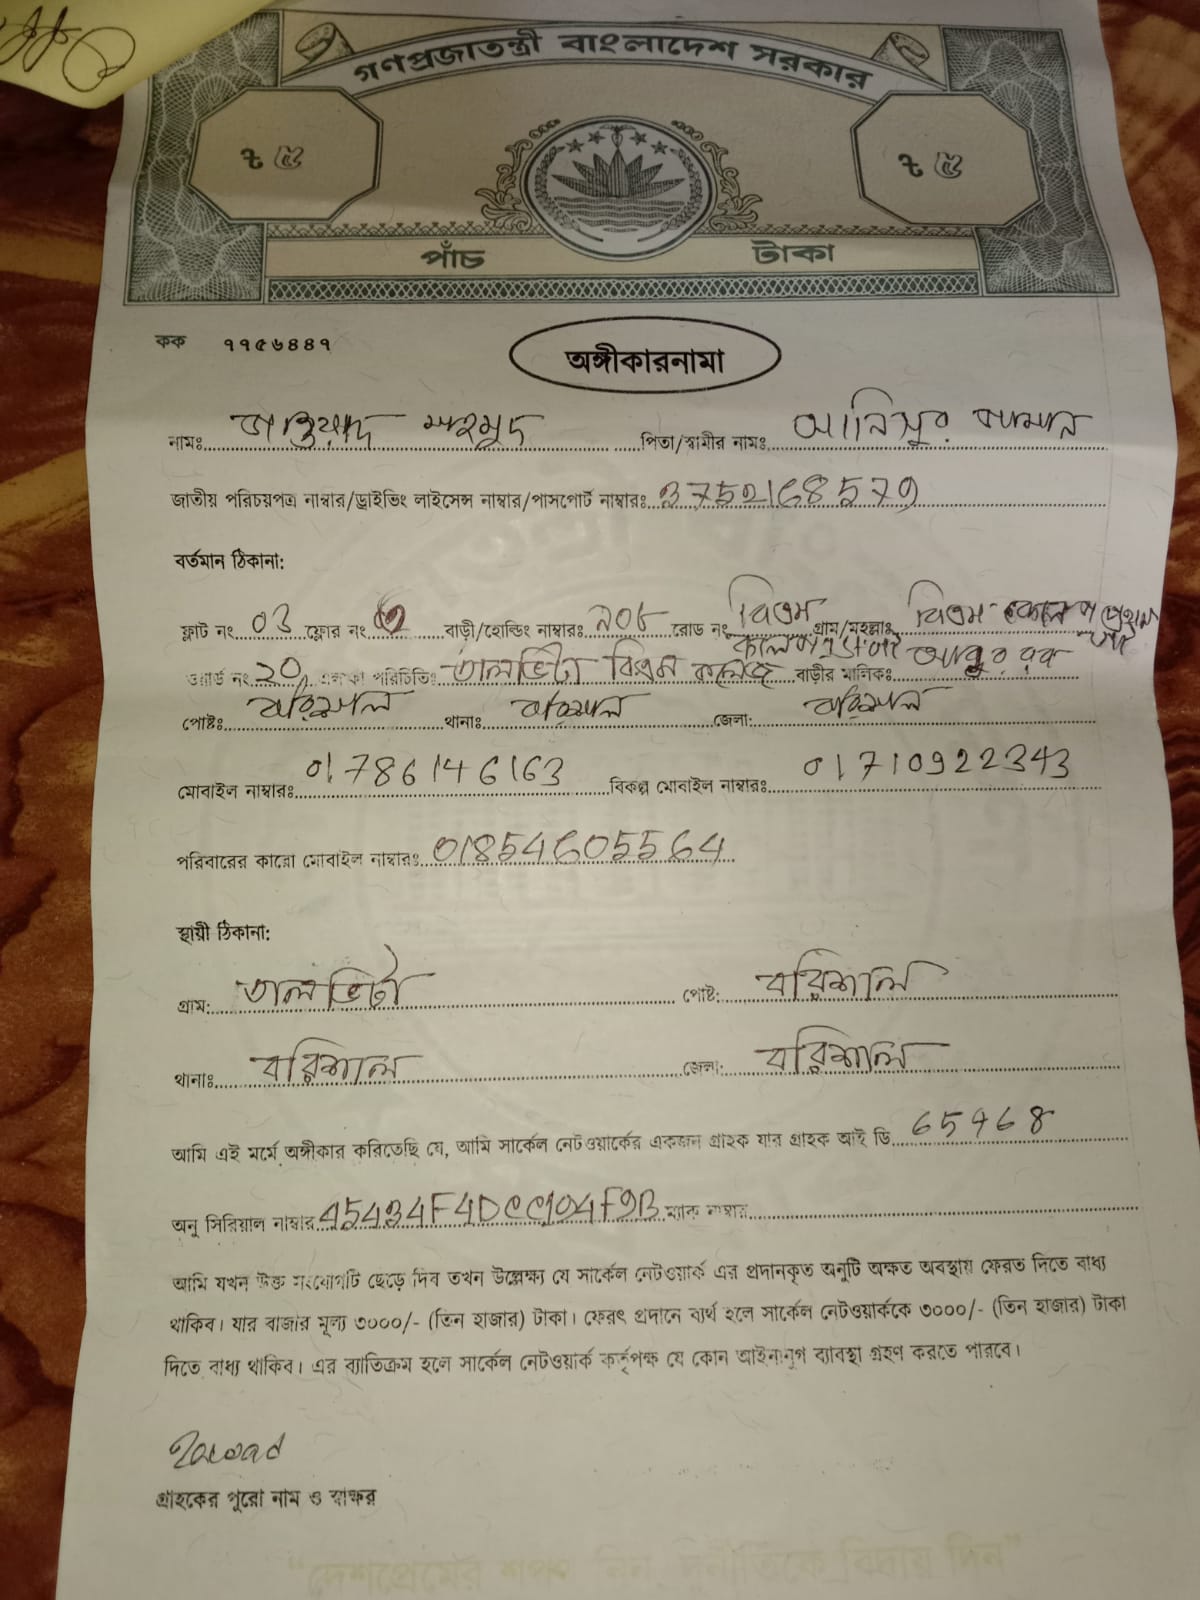 গণপ্রজাতন্ত্রী বাংলাদেশ সরকার
৳ ৫ ৳ ৫
পাঁচ টাকা
কক ৭৭৫৬৪৪৭
অঙ্গীকারনামা
নামঃ জাওয়াদ মাহমুদ পিতা/স্বামীর নামঃ আনিসুর জামান
জাতীয় পরিচয়পত্র নাম্বার/ড্রাইভিং লাইসেন্স নাম্বার/পাসপোর্ট নাম্বারঃ 3752168579
বর্তমান ঠিকানা:
ফ্লাট নং 03 ফ্লোর নং বাড়ী/হোল্ডিং নাম্বারঃ ২০৮ রোড নং বিএম গ্রাম/মহল্লাঃ বিএম
ওয়ার্ড নং 20 এলাকা পরিচিতিঃ তালভিটা বিএম কলেজ বাড়ীর মালিকঃ
পোষ্টঃ বরিশাল থানাঃ বরিশাল জেলা: বরিশাল
মোবাইল নাম্বারঃ 01786146163 বিকল্প মোবাইল নাম্বারঃ 01710922343
পরিবারের কারো মোবাইল নাম্বারঃ 01854605564
স্থায়ী ঠিকানা:
গ্রাম: তালভিটা পোষ্ট: বরিশাল
থানাঃ বরিশাল জেলা: বরিশাল
আমি এই মর্মে অঙ্গীকার করিতেছি যে, আমি সার্কেল নেটওয়ার্কের একজন গ্রাহক যার গ্রাহক আই ডি
অনু সিরিয়াল নাম্বার ম্যাক নাম্বার
আমি যখন উক্ত সংযোগটি ছেড়ে দিব তখন উল্লেক্ষ্য যে সার্কেল নেটওয়ার্ক এর প্রদানকৃত অনুটি অক্ষত অবস্থায় ফেরত দিতে বাধ্য
থাকিব। যার বাজার মূল্য ৩০০০/- (তিন হাজার) টাকা। ফেরৎ প্রদানে ব্যর্থ হলে সার্কেল নেটওয়ার্ককে ৩০০০/- (তিন হাজার) টাকা
দিতে বাধ্য থাকিব। এর ব্যাতিক্রম হলে সার্কেল নেটওয়ার্ক কর্তৃপক্ষ যে কোন আইনানুগ ব্যাবস্থা গ্রহণ করতে পারবে।
Zawad
গ্রাহকের পুরো নাম ও স্বাক্ষর
"দেশপ্রেমের শপথ নিন, দুর্নীতিকে বিদায় দিন"